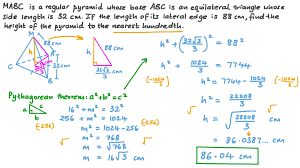 MABC is a regular pyramid whose base ABC is an equilateral triangle whose
side length is 32 cm. If the length of its lateral edge is 88 cm, find the
height of the pyramid to the nearest hundredth.
M
88 cm
88 cm
h
32√3/3 cm
Pythagorean theorem: a²+b²=c²
16² + m² = 32²
256 + m² = 1024
(-256) (-256)
m² = 1024-256
m² = 768
m = √768
m = 16√3 cm
h² + (32√3/3)² = 88²
h² + 1024/3 = 7744
(-1024/3) (-1024/3)
h² = 7744 - 1024/3
h² = 22208/3
h = √22208/3
= 86.0387... cm
86.04 cm